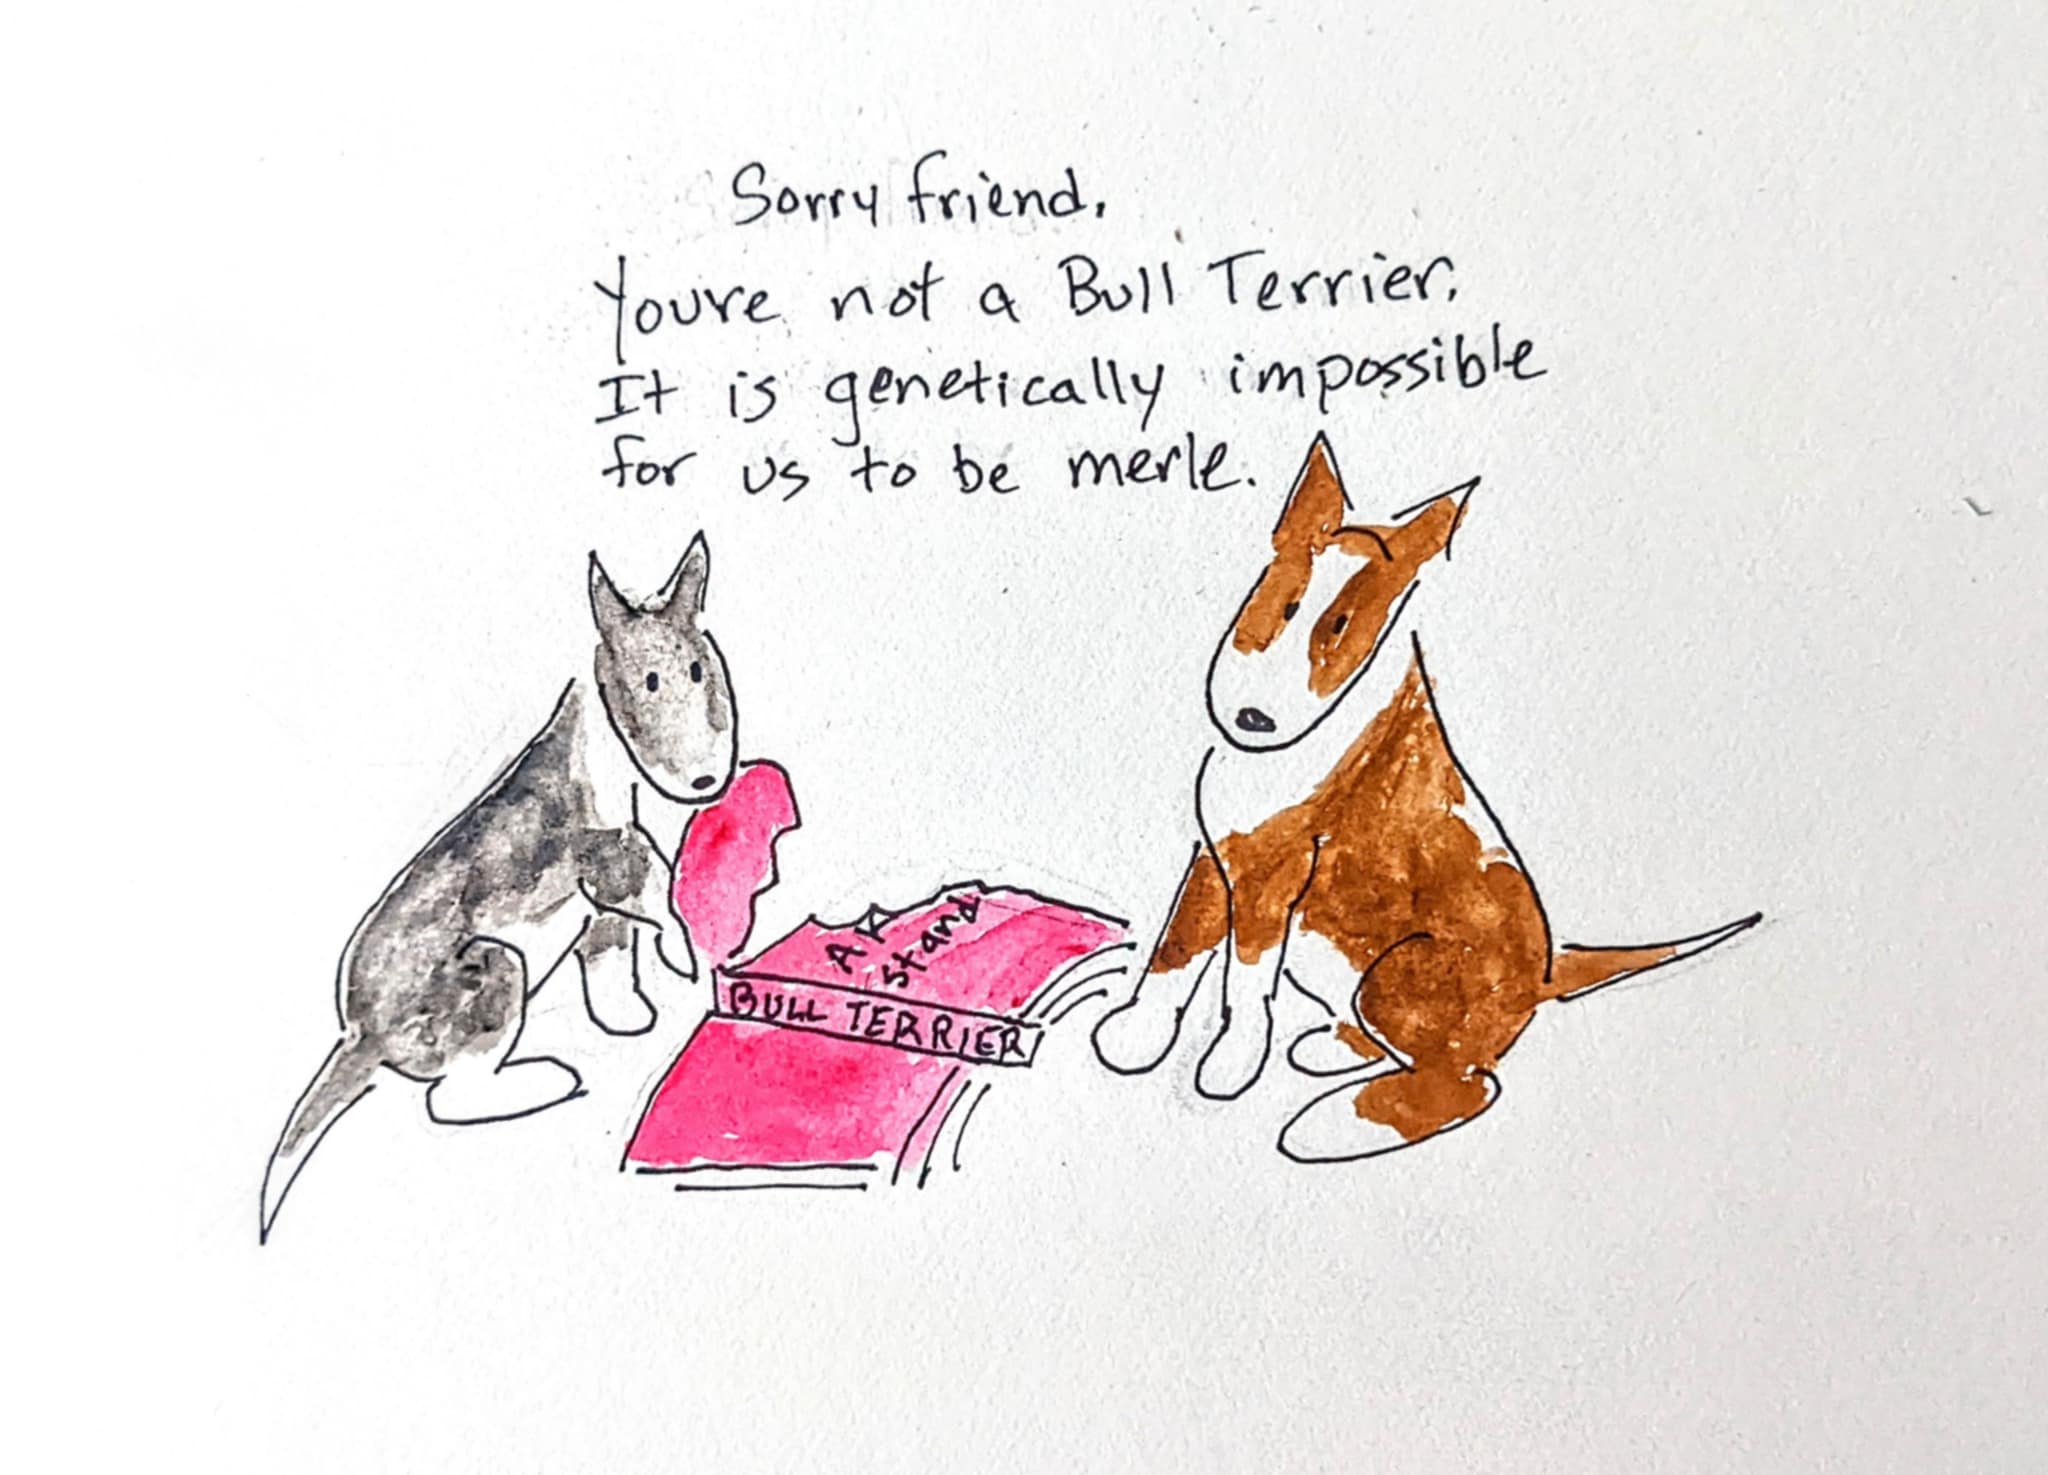 Sorry friend.
Youre not a Bull Terrier.
It is genetically impossible
for us to be merle.
AK
Stand
BULL TERRIER